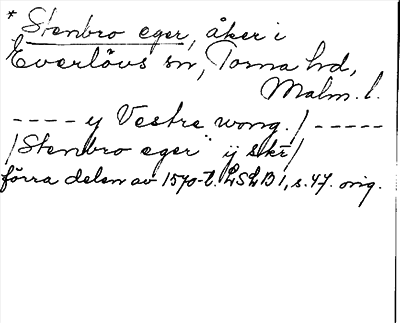 * Stenbro eger, åker i
Everlövs sn, Torna hd,
Malm. l.
---- y Vestre wong. / -----
/ Stenbro eger ij skr /
förra delen av 1570-t. LSLB 1, s. 47. orig.